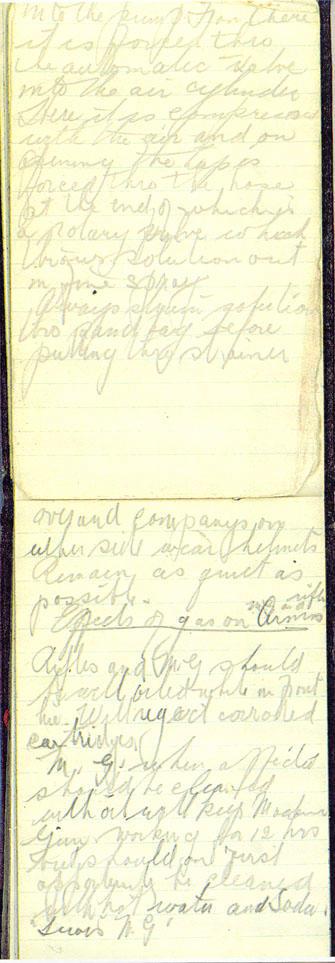 into the pump. From there
it is forced thro
the automatic valve
into the air cylinder
where it is compressed
with the air and on
opening the tap is
forced thro the hose
at the end of which is
a rotary which
throws solution out
in fine spray
Always strain solution
thro sand bag before
putting thro strainer
Coy and Companys on
either side wear helmets
Remain as quiet as
possible.
Effects of gas on Arms
Rifles and M.G should
be well oiled while in front
line. Will eject corroded
cartridges
M. G. when affected
should be cleaned
with oil will keep Machine
Gun working for 12 hrs
but should on first
opportunity be cleaned
with hot water and Soda.
"Lewis M G"